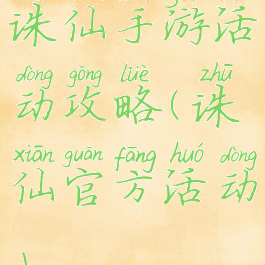 诛仙手游活
dòng gōng lüè zhū
动攻略(诛
xiān guān fāng huó dòng
仙官方活动
)